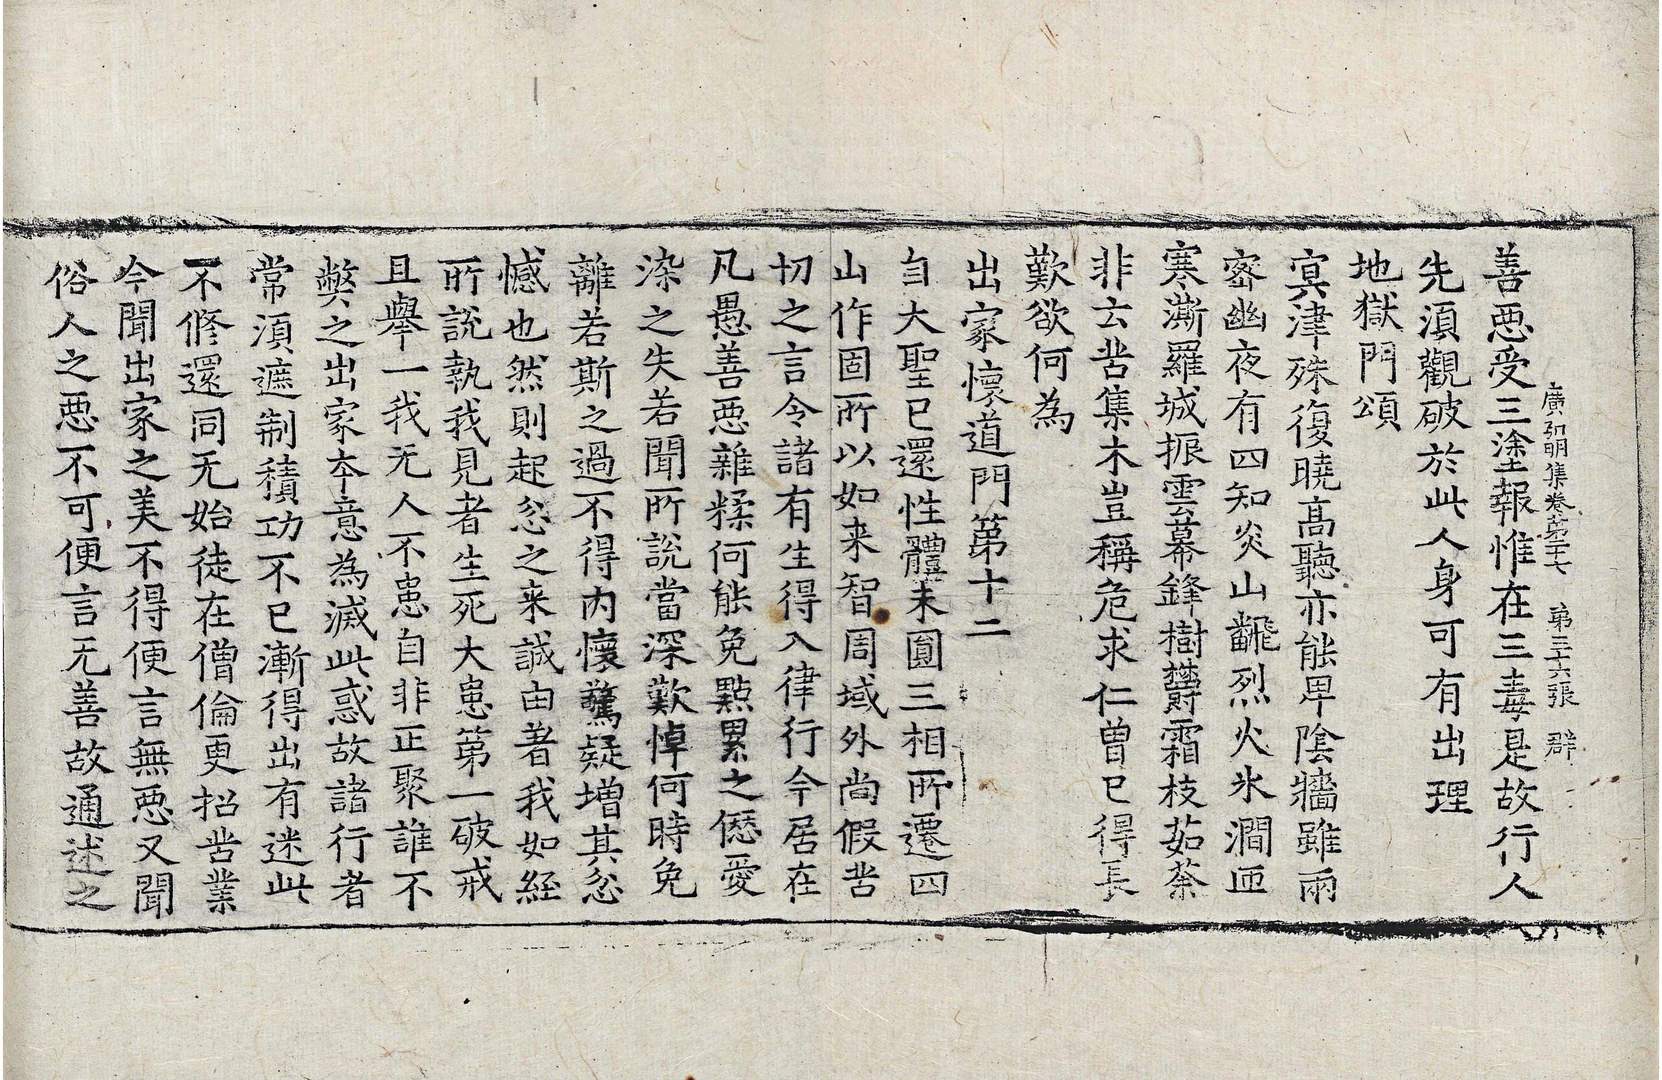 廣弘明集卷第二十七 第三十六張 群
善惡受三塗報惟在三毒是故行人
先須觀破於此人身可有出理
地獄門頌
冥津殊復曉高聽亦能卑陰牆雖兩
密幽夜有四知炎山翻烈火氷澗迊
寒澌羅城振雲幕鋒樹鬱霜枝茹荼
非云苦集木豈稱危求仁曾已得長
歎欲何為
出家懷道門第十二
自大聖已還性體未圓三相所遷四
山作固所以如来智周域外尚假苦
切之言令諸有生得入律行今居在
凡愚善惡雜糅何能免點累之𠎝愛
染之失若聞所說當深歎悼何時免
離若斯之過不得內懷驚疑增其忿
憾也然則起忿之来誠由著我我如経
所說執我見者生死大患第一破戒
且舉一我无人不患自非正聚誰不
弊之出家夲意為滅此惑故諸行者
常須遮制積功不已漸得出有迷此
不修還同无始徒在僧倫更招苦業
今聞出家之美不得便言無惡又聞
俗人之惡不可便言无善故通述之